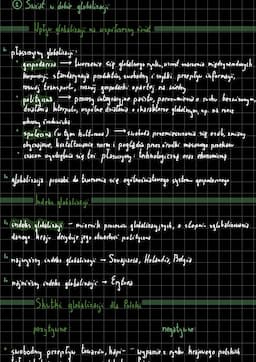 ① Świat w dobie globalizacji
Wpływ globalizacji na współczesny świat
płaszczyzny globalizacji:
gospodarcza → tworzenie się globalnego rynku, wzrost znaczenia międzynarodowych
korporacji, standaryzacja produktów, swobodny i szybki przepływ informacji,
rozwój transportu, rozwój gospodarki opartej na wiedzy
polityczna → pomocy integracyjne państw, porozumienia o ruchu bezwizowym,
działania Interpolu, wspólne działania o charakterze globalnym, np. na rzecz
ochrony środowiska
społeczna (w tym kulturowa) → swoboda przemieszczania się osób, zmiany
obyczajowe, kształtowanie norm i poglądów przez środki masowego przekazu
czasem wyodrębnia się też płaszczyznę technologiczną oraz ekonomiczną
globalizacja prowadzi do tworzenia się ogólnoświatowego systemu gospodarczego
Indeks globalizacji
indeks globalizacji – miernik procesów globalizacyjnych, o stopniu zglobalizowania
danego kraju decyduje jego otwartość polityczna
najwyższy indeks globalizacji → Szwajcaria, Holandia, Belgia
najniższy indeks globalizacji → Erytrea
Skutki globalizacji dla Polski
pozytywne: negatywne:
swobodny przepływ towarów, kapi- – wypieranie z rynku krajowego polskich